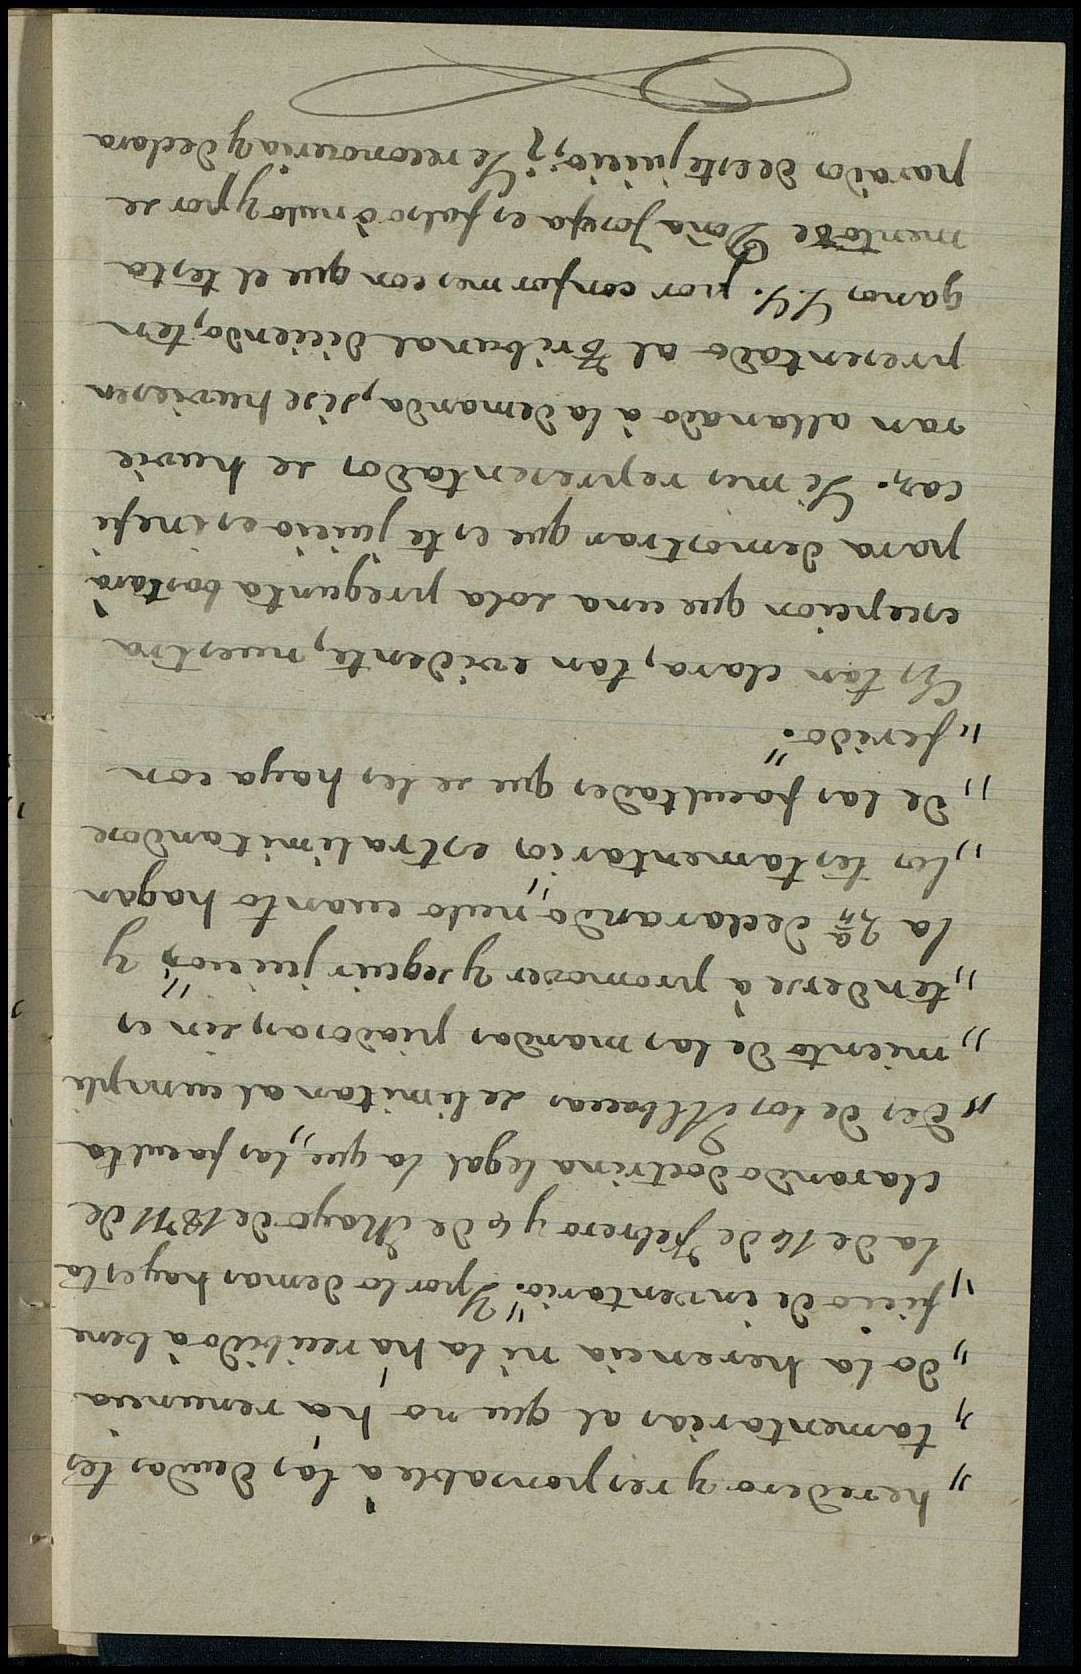 „ heredero y responsable á las deudas tes
„ tamentarias al que no há renuncia
„ do la herencia ni la há recibido á bene
„ ficio de inventario." Y por lo demas hay esta
la de 16 de Febrero y 6 de Mayo de 1871 de
clarando doctrina legal la que „ las faculta
„ des de los Albaceas se limitan al cumpli
„ miento de las mandas piadosas, sin es
„ tenderse á promover y seguir juicios" y
la 2ª declarando „ nulo cuanto hagan
„ los testamentarios estralimitandose
„ de las facultades que se les haya con
„ ferido."
Es tan clara, tan evidente, nuestra
escepcion que una sola pregunta bastará
para demostrar que este juicio es inefi
caz. Si mis representados se huvie
ran allanado á la demanda, si se huviesen
presentado al Tribunal diciendo, ten
ganos V.S. por conformes con que el testa
mento de Doña Josefa es falso ó nulo y por se
parados de este juicio; ¿Se reconoceria y declara